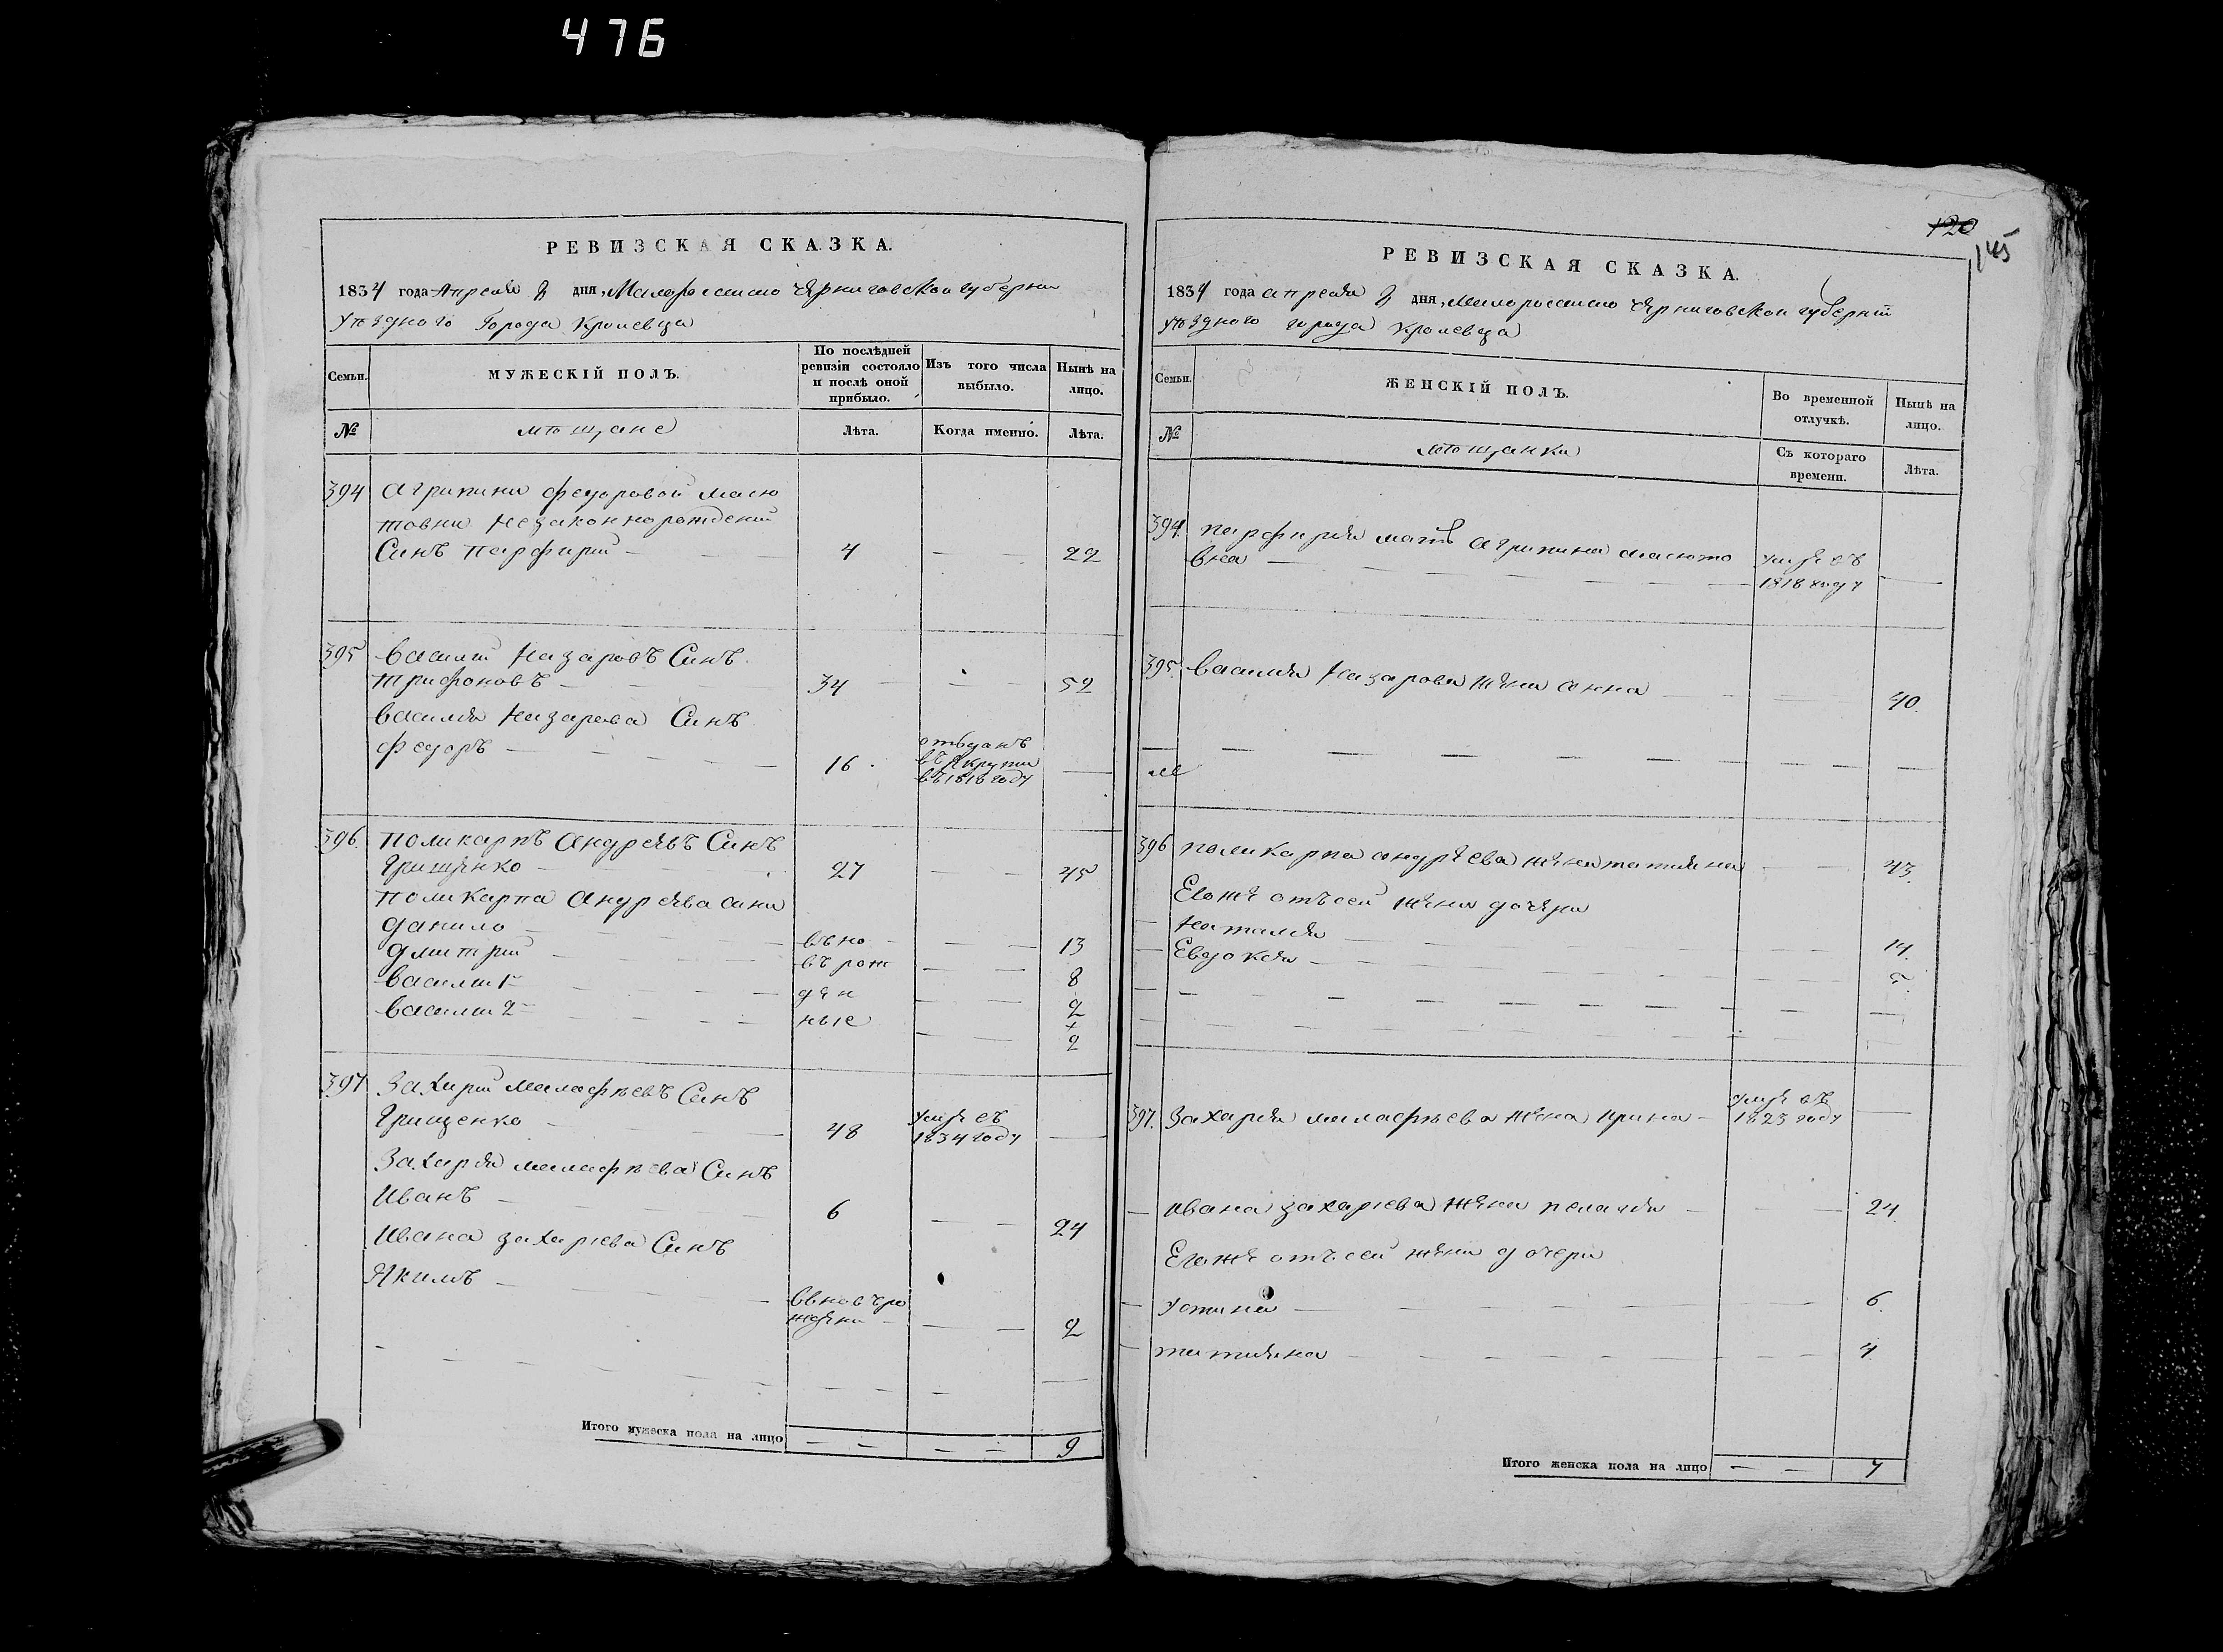 476
РЕВИЗСКАЯ СКАЗКА.
1834 года Апреля дня, Малоросийско Черниговской губернии
уѣздного Города Кролевца
Семьи.
МУЖЕСКІЙ ПОЛЪ.
По послѣдней ревизіи состояло и послѣ оной прибыло.
Изъ того числа выбыло.
Нынѣ на лицо.
№
мѣщане
Лѣта.
Когда именно.
Лѣта.
394 Агрипини федоровой Масю
товни незаконнорожденій
Синъ Парфирій — 4 — — 22
395 Василій Назаровъ Синъ
Трифоновъ — 34 — — 52
Василія Назарова Синъ
федоръ — 16 отъданъ въ рекрути въ 1818 году —
396. Поликарпъ Андреевъ Синъ
Грищенко — 27 — — 45
Поликарпа Андреева сини
Данило — внов — — 13
Дмитрий — въ рож — — 8
Василий 1й — ден — — 2
Василий 2й — ные — — 2
397 Захарий Малафѣевъ Синъ
Грищенко — 48 умре въ 1834 году —
Захария малафѣева Синъ
Иванъ — 6 — — 24
Ивана захариева Синъ
Якимъ — вновъ рожденн — — 2
Итого мужеска пола на лицо — — — — 9
120
145
РЕВИЗСКАЯ СКАЗКА.
1834 года апреля дня, Малоросийско Черниговской губерній
уѣздного города Кролевца
Семьи.
ЖЕНСКІЙ ПОЛЪ.
Во временной отлучкѣ.
Нынѣ на лицо.
№
мѣщанки
Съ котораго времени.
Лѣта.
394. Парфирия мать Агрипина Масюто
вна — умре въ 1818 году —
395. Василия Назарова жена Анна — 40.
396 Поликарпа андреева жена татияна — 43.
Егоже отъсей жени дочери
Наталия — 14.
Евдокия — 5.
397. Захария малафѣева жена ирина — умре въ 1823 году —
Ивана захариева жена пелагия — 24.
Егоже отъсей жени дочери
Устина — 6.
татияна — 4.
Итого женска пола на лицо — — 7